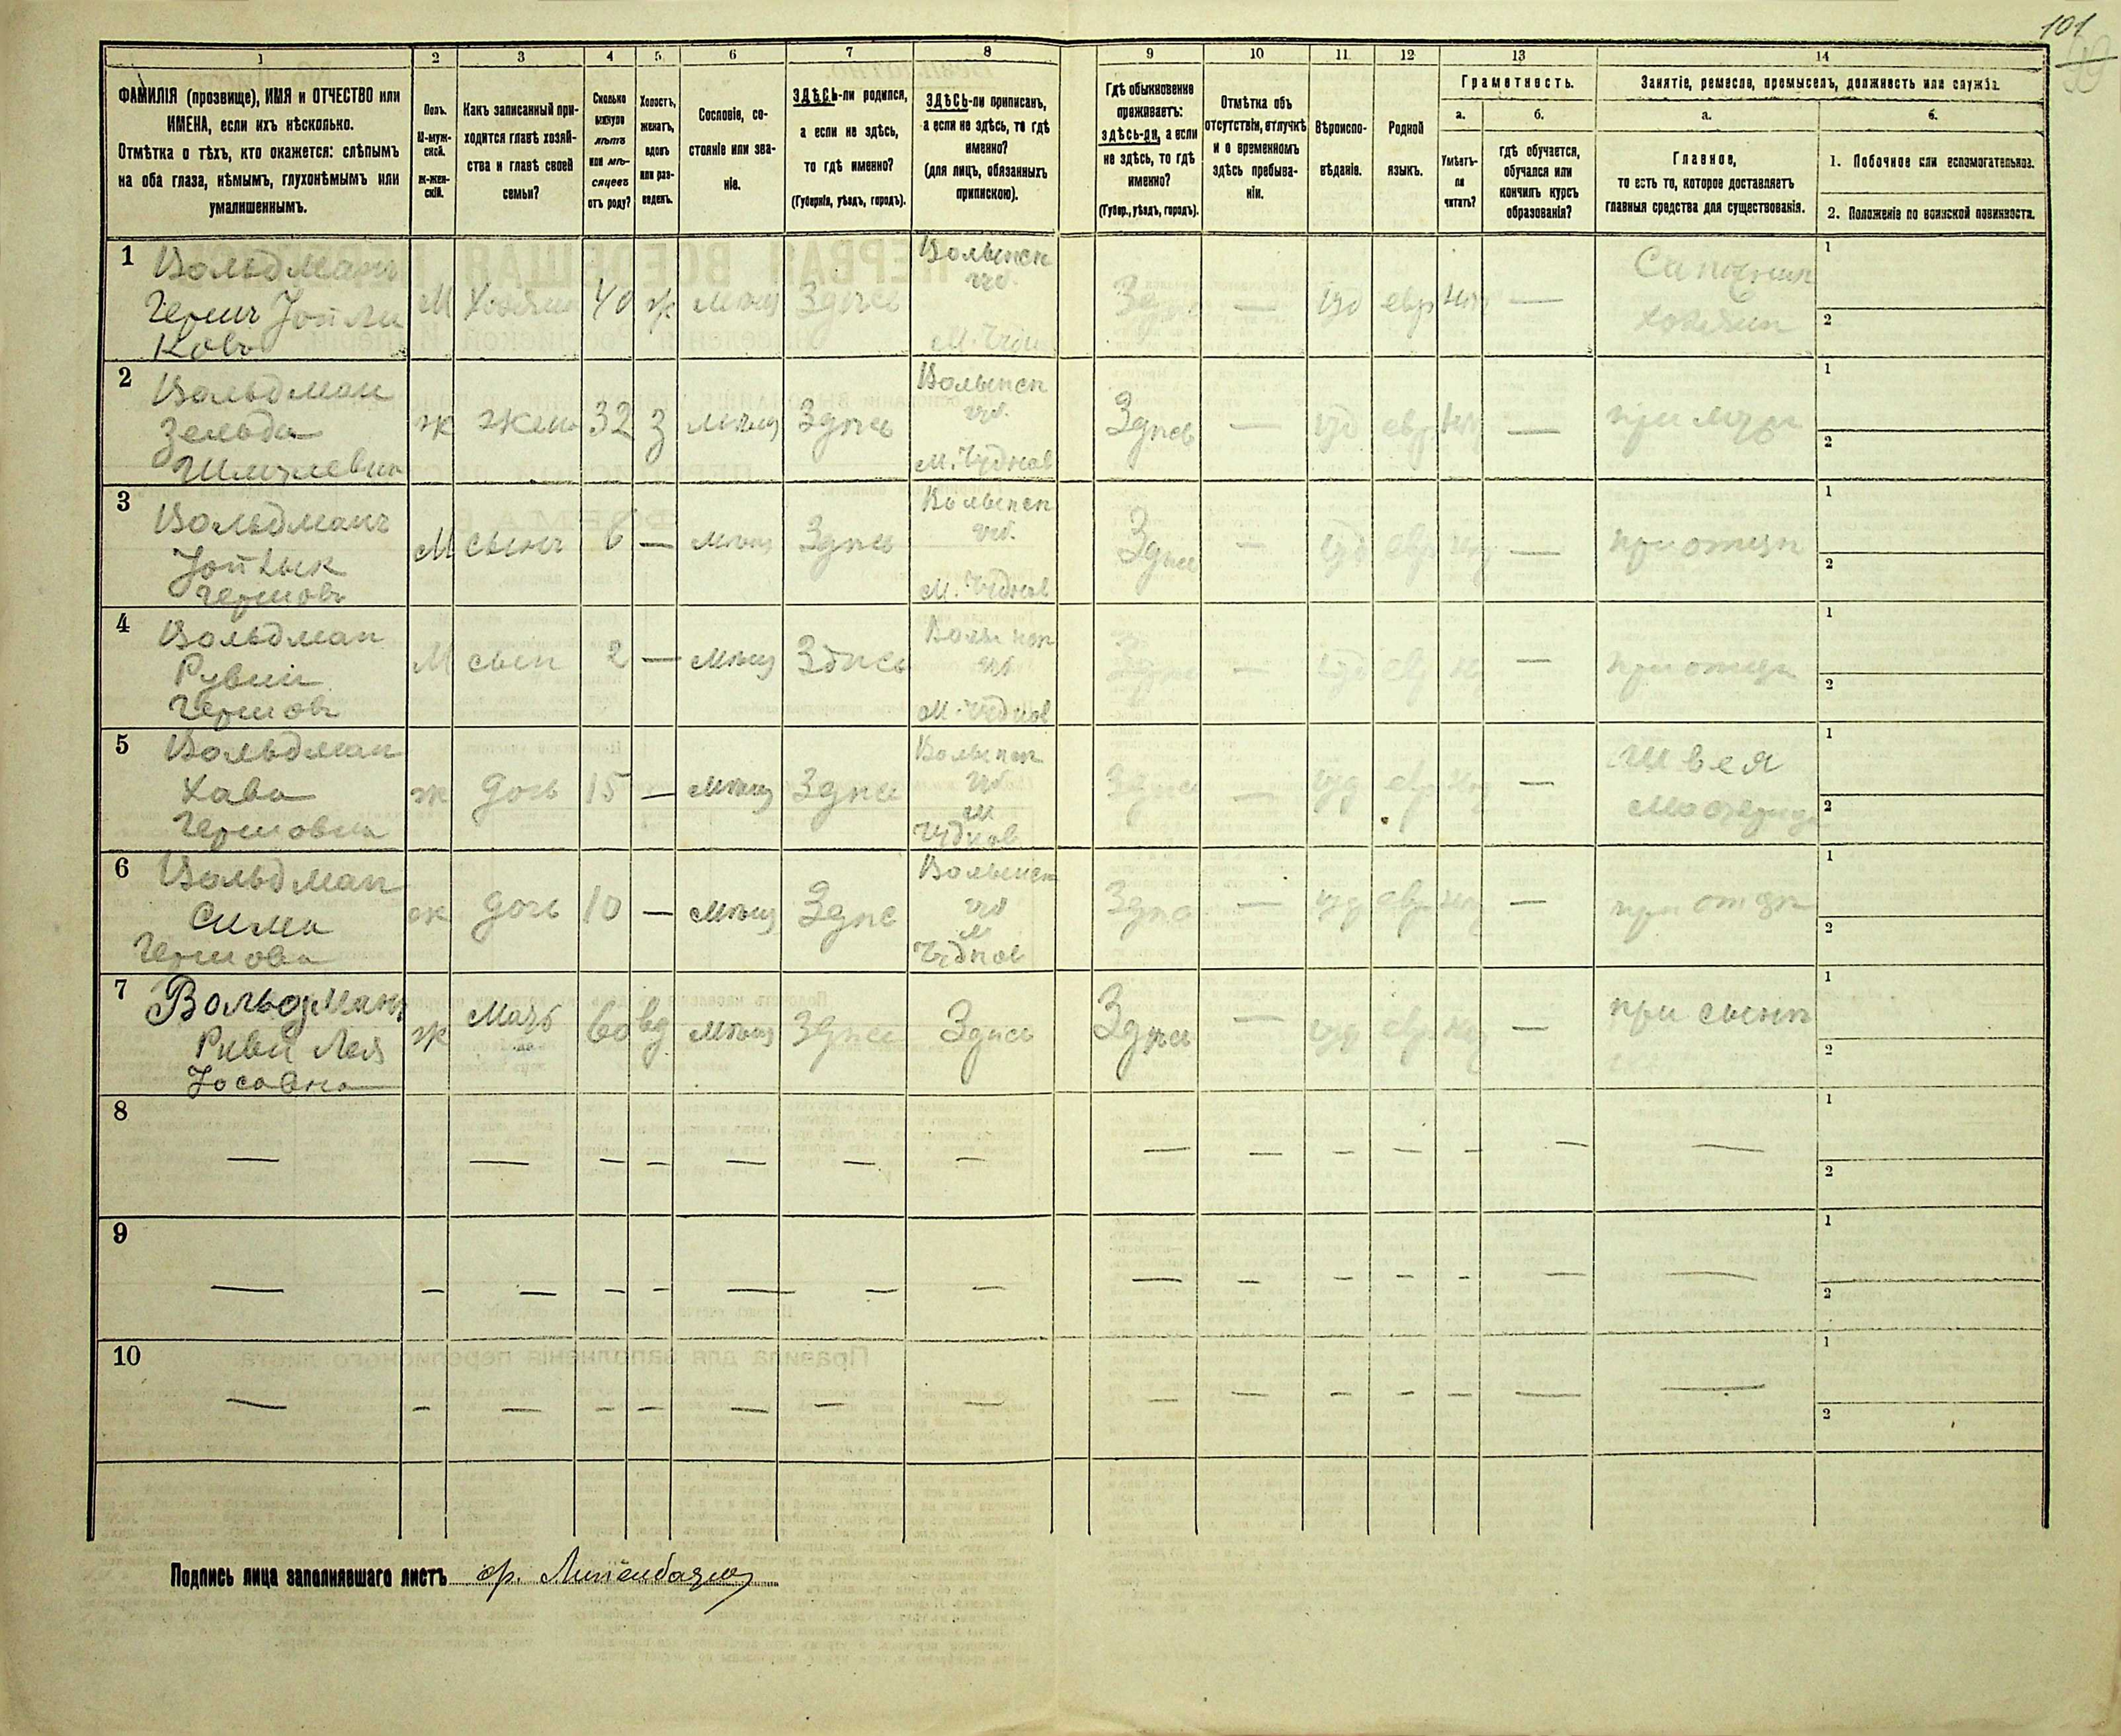 101
99
1 2 3 4 5 6 7 8 9 10 11 12 13 14
ФАМИЛІЯ (прозвище), ИМЯ и ОТЧЕСТВО или
ИМЕНА, если ихъ нѣсколько.
Отмѣтка о тѣхъ, кто окажется: слѣпымъ
на оба глаза, нѣмымъ, глухонѣмымъ или
умалишеннымъ.
Полъ.
М-муж-
ской.
Ж-жен-
скій.
Какъ записанный при-
ходится главѣ хозяй-
ства и главѣ своей
семьи?
Сколько
минуло
лѣтъ
или мѣ-
сяцевъ
отъ роду?
Холостъ,
женатъ,
вдовъ
или раз-
веденъ.
Сословіе, со-
стояніе или зва-
ніе.
ЗДѢСЬ-ли родился,
а если не здѣсь,
то гдѣ именно?
(Губернія, уѣздъ, городъ).
ЗДѢСЬ-ли приписанъ,
а если не здѣсь, то гдѣ
именно?
(для лицъ, обязанныхъ
припискою).
Гдѣ обыкновенно
проживаетъ:
здѣсь-ли, а если
не здѣсь, то гдѣ
именно?
(Губер., уѣздъ, городъ).
Отмѣтка объ
отсутствіи, отлучкѣ
и о временномъ
здѣсь пребыва-
ніи.
Вѣроиспо-
вѣданіе.
Родной
языкъ.
Грамотность.
а.
Умѣетъ-
ли
читать?
б.
Гдѣ обучается,
обучался или
кончилъ курсъ
образованія?
Занятіе, ремесло, промыселъ, должность или служба.
а.
Главное,
то есть то, которое доставляетъ
главныя средства для существованія.
б.
1. Побочное или вспомогательное.
2. Положеніе по воинской повинности.
1 Вольдманъ
Герш
М 40 ж Здѣсь
Волынск
губ.
— іуд евр —
хозяин
1
2
2 Вольдман
Зельда
Шмулевна
ж жена 32 з мѣщ Здѣсь
Волынск
губ.
м. Чуднов
Здѣсь — іуд евр —
при мужѣ
1
2
3 Вольдманъ
Гершовъ
М сынъ 6 — мѣщ Здѣсь
Волынск
губ.
м. Чуднов
Здѣсь — іуд евр —
при отцѣ
1
2
4 Вольдман
Рувин
Гершов
М сын 2 — мѣщ Здѣсь
губ
м. Чуднов
— іуд —
при отцѣ
1
2
5 Вольдман
Хава
Гершовна
ж дочь 15 — мѣщ Здѣсь
губ
м
Чуднов
Здѣсь — іуд евр —
Швея
1
2
6 Вольдман
Сима
Гершова
ж дочь 10 — мѣщ Здѣс
Волынск
губ
м
Чуднов
Здѣс — іуд евр —
при отцѣ
1
2
7 Вольдманъ
Лея
ж Мать 60 вд мѣщ Здѣсь Здѣсь Здѣсь — іуд евр —
при сынѣ
1
2
8 — — — — — — — — — — — — — —
1
2
9 — — — — — — — — — — — — — — —
1
2
10 — — — — — — — — — — — — — — —
1
2
Подпись лица заполнявшаго листъ